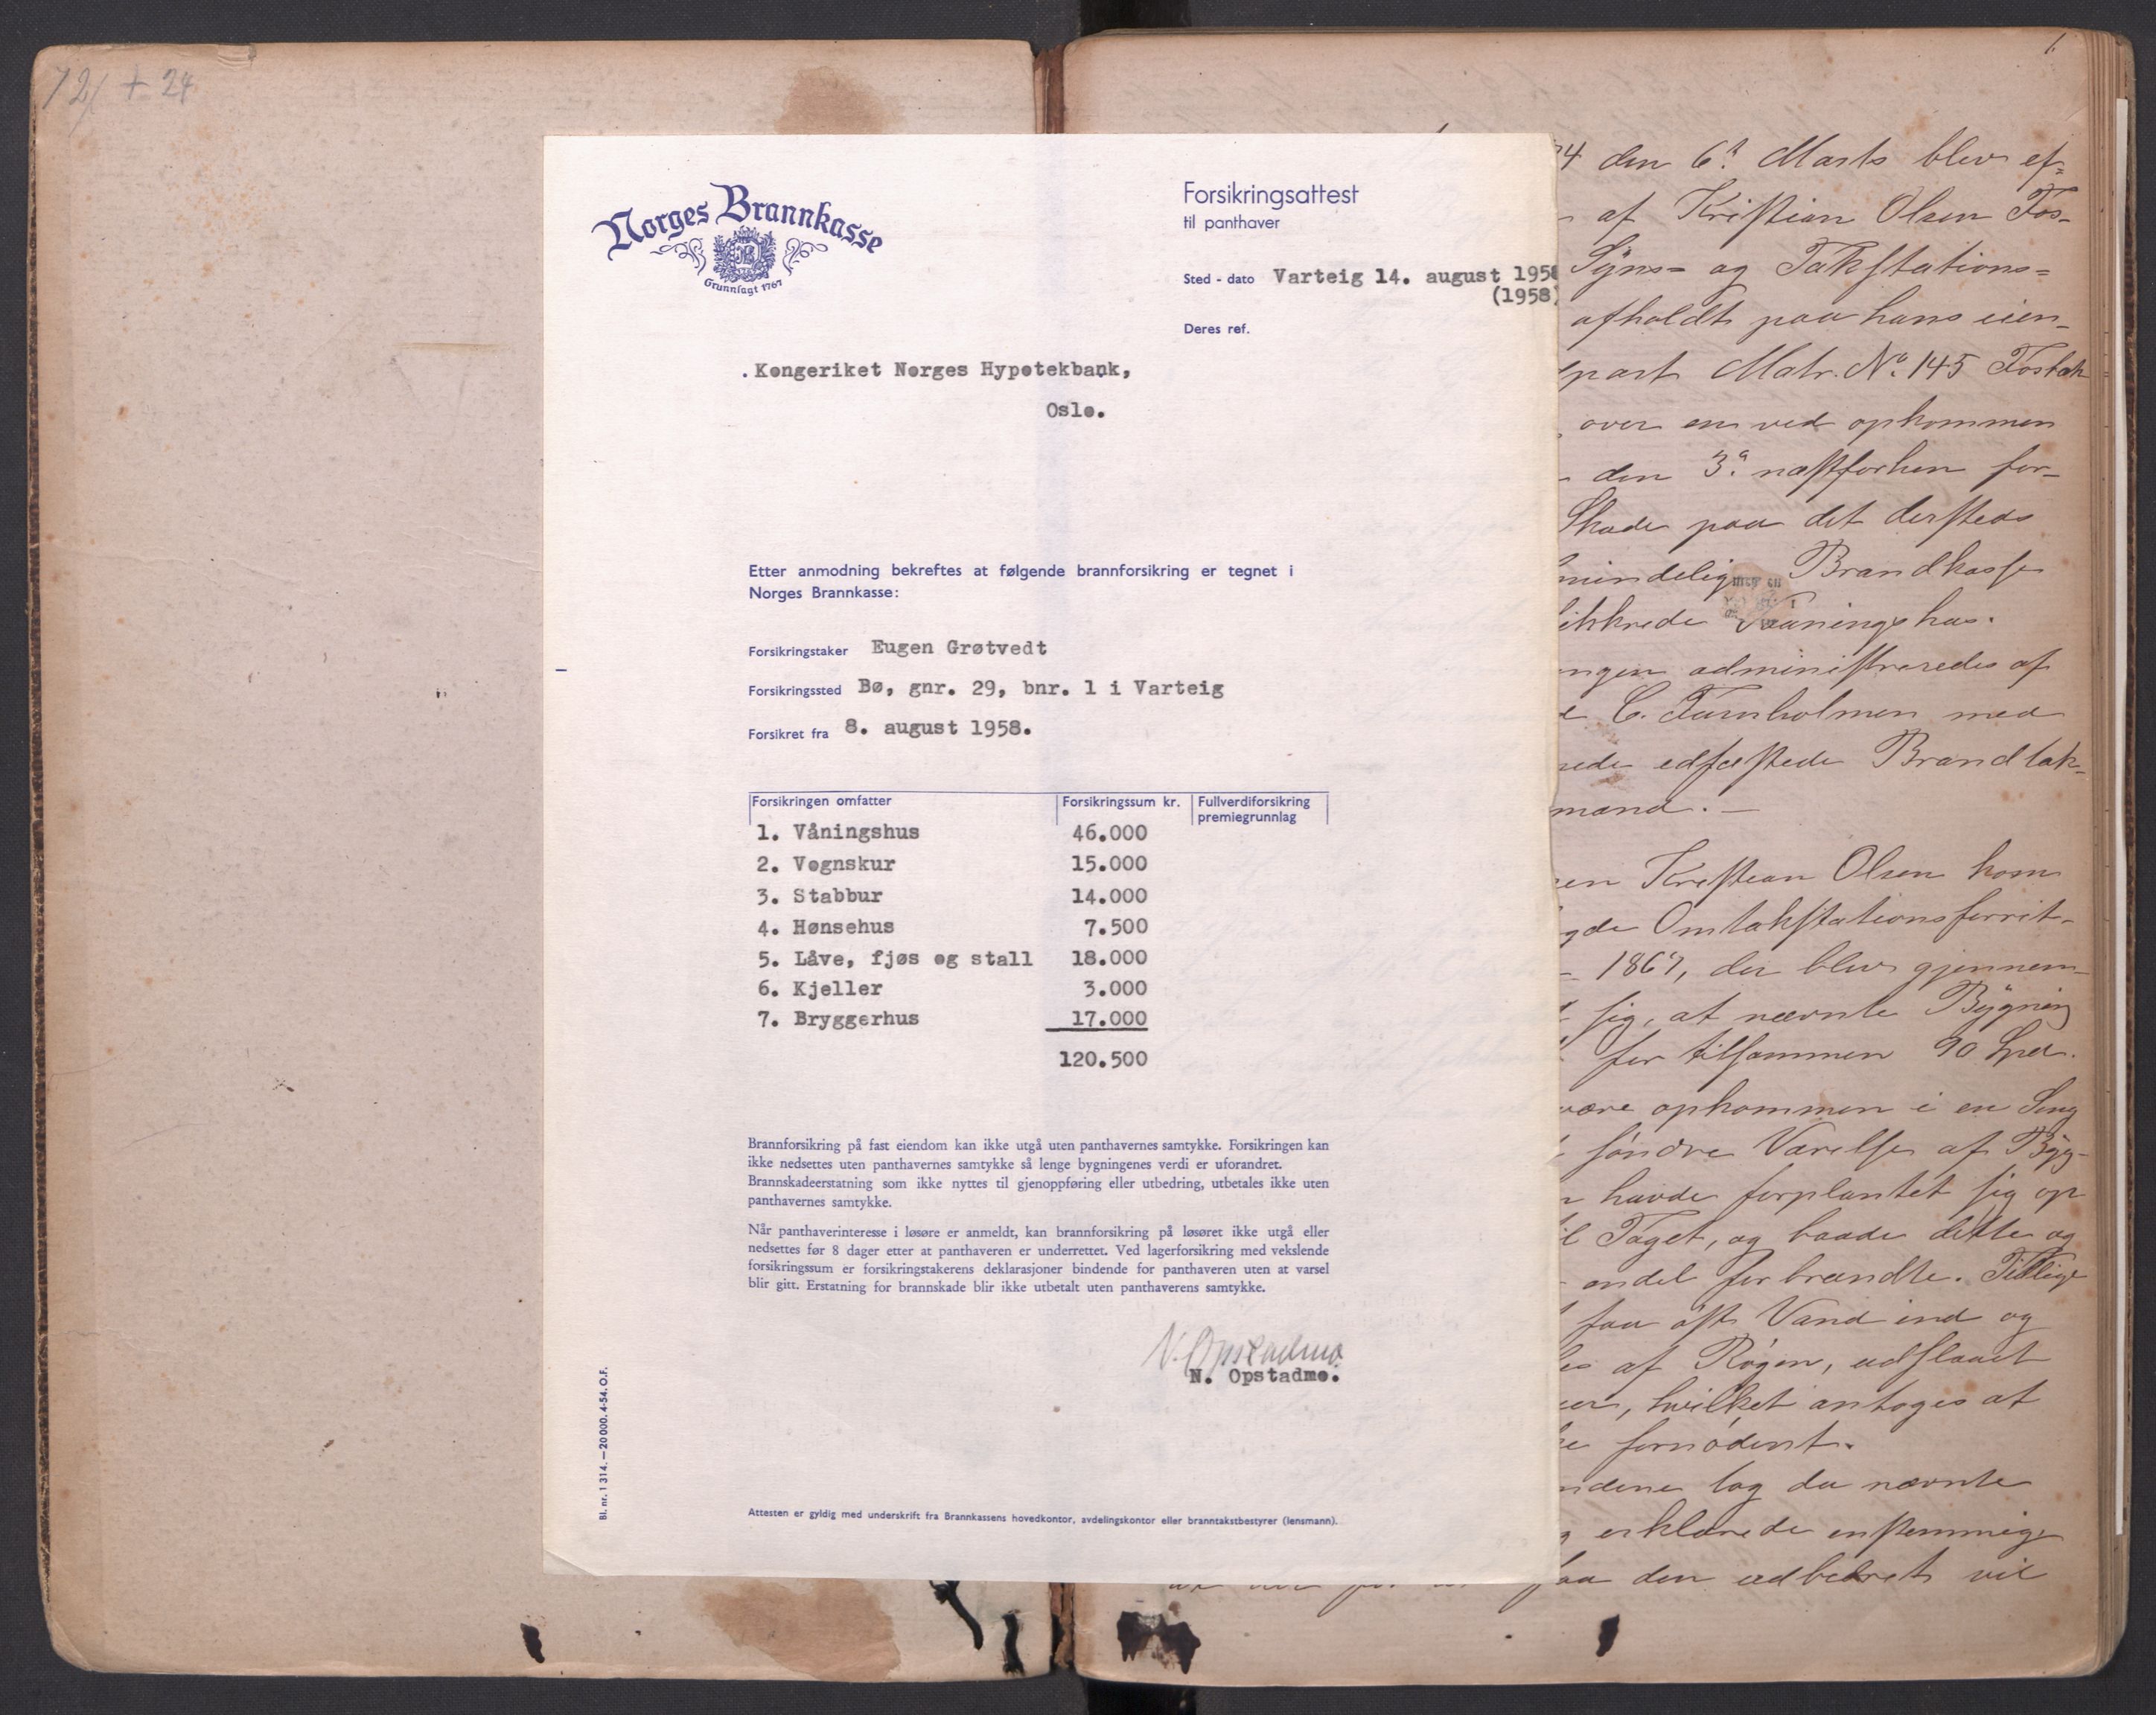 12/ + 24
1.
Norges Brannkasse
Grunnlagt 1767
Forsikringsattest
til panthaver
Sted - dato Varteig 14. august 1958
(1958)
Deres ref.
Kongeriket Norges Hypotekbank,
Oslo.
Etter anmodning bekreftes at følgende brannforsikring er tegnet i
Norges Brannkasse:
Forsikringstaker Eugen Grøtvedt
Forsikringssted Bø, gnr. 29, bnr. 1 i Varteig
Forsikret fra 8. august 1958.
Forsikringen omfatter Forsikringssum kr. Fullverdiforsikring
premiegrunnlag
1. Våningshus 46.000
2. Vognskur 15.000
3. Stabbur 14.000
4. Hønsehus 7.500
5. Låve, fjøs og stall 18.000
6. Kjeller 3.000
7. Bryggerhus 17.000
120.500
Brannforsikring på fast eiendom kan ikke utgå uten panthavernes samtykke. Forsikringen kan
ikke nedsettes uten panthavernes samtykke så lenge bygningenes verdi er uforandret.
Brannskadeerstatning som ikke nyttes til gjenoppføring eller utbedring, utbetales ikke uten
panthavernes samtykke.
Når panthaverinteresse i løsøre er anmeldt, kan brannforsikring på løsøret ikke utgå eller
nedsettes før 8 dager etter at panthaveren er underrettet. Ved lagerforsikring med vekslende
forsikringssum er forsikringstakerens deklarasjoner bindende for panthaveren uten at varsel
blir gitt. Erstatning for brannskade blir ikke utbetalt uten panthaverens samtykke.
N. Opstadmo.
N. Opstadmo.
Bl. nr. 1 314. — 20 000. 4-54. O.F.
Attesten er gyldig med underskrift fra Brannkassens hovedkontor, avdelingskontor eller branntakstbestyrer (lensmann).
74 den 6te Marts blev ef-
af Kristian Olsen Fos-
Syns- og Takstations-
afholdt paa hans eien-
part Matr. No. 145 Fostak
over en ved opkommen
den 3die næstforhen for-
Skade paa det dersteds
mindelig Brandkasse
sikkrede Vaaningshus.
ngen administreredes af
C. Tarnholmen med
nede edfæstede Brandtak-
mænd. —
en Kristian Olsen kom
gde Omtakstationsforret-
1867, der blev gjennem-
sig, at nævnte Bygning
for tilsammen 90 Spd.
være opkommen i en Seng
søndre Værelse af Byg-
havde forplantet sig op
til Taget, og baade dette og
andel forbrændte. Tillige
faa øst Vand ind og
es af Røgen, udslaaet
er, hvilket antoges at
fornødent.
ndene tog da nævnte
erklærede enstemmig
paa den udbedret vil